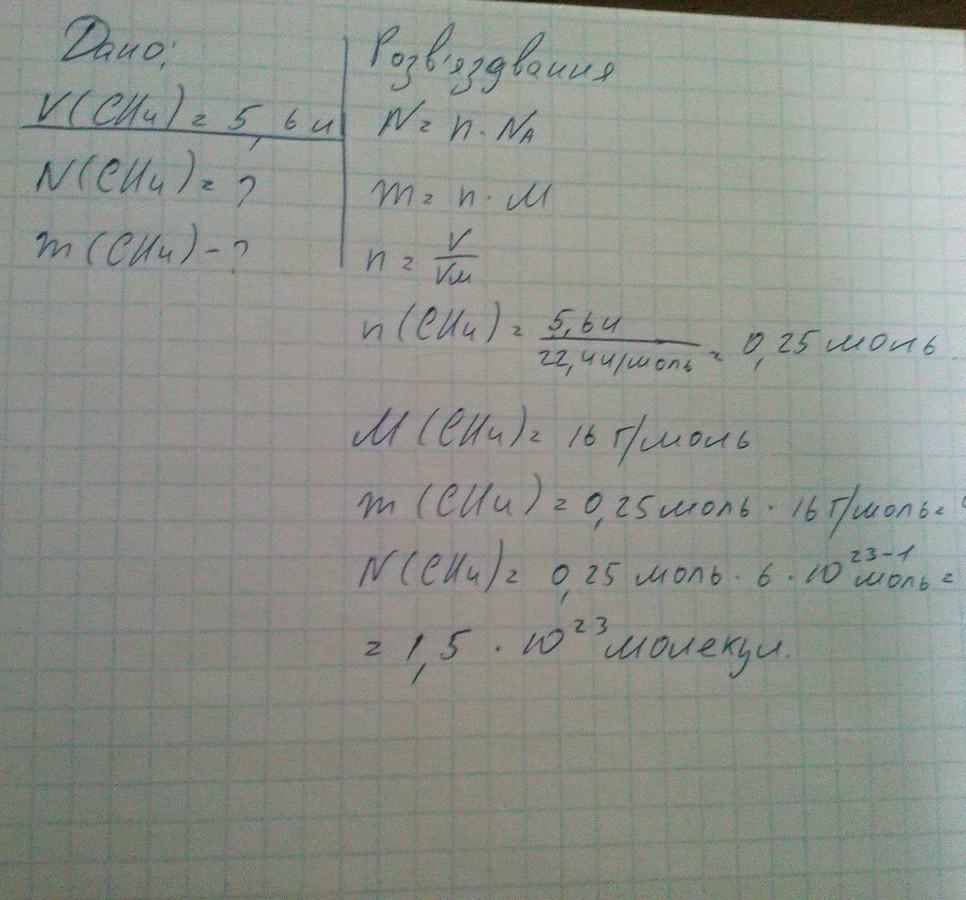 Дано:
V(CH4) = 5,6 л
N(CH4) = ?
m(CH4) - ?
Розв'яздвання
N = n · NA
m = n · M
n = V/Vм
n(CH4) = 5,6 л / 22,4 л/моль = 0,25 моль
M(CH4) = 16 г/моль
m(CH4) = 0,25 моль · 16 г/моль =
N(CH4) = 0,25 моль · 6 · 10²³ моль⁻¹ =
= 1,5 · 10²³ молекул.